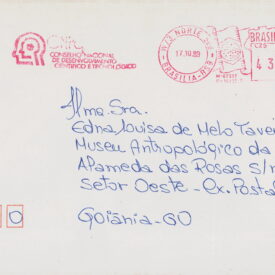 CNPq
CONSELHO NACIONAL
DE DESENVOLVIMENTO
CIENTÍFICO E TECNOLÓGICO
NORTE
17.10.89
BRASÍLIA
BRASIL
43
Ilma. Sra.
Edna Louisa de Melo Tave
Museu Antropológico da
Alameda das Rosas s/n
Setor Oeste - Cx. Postal
Goiânia-GO
O